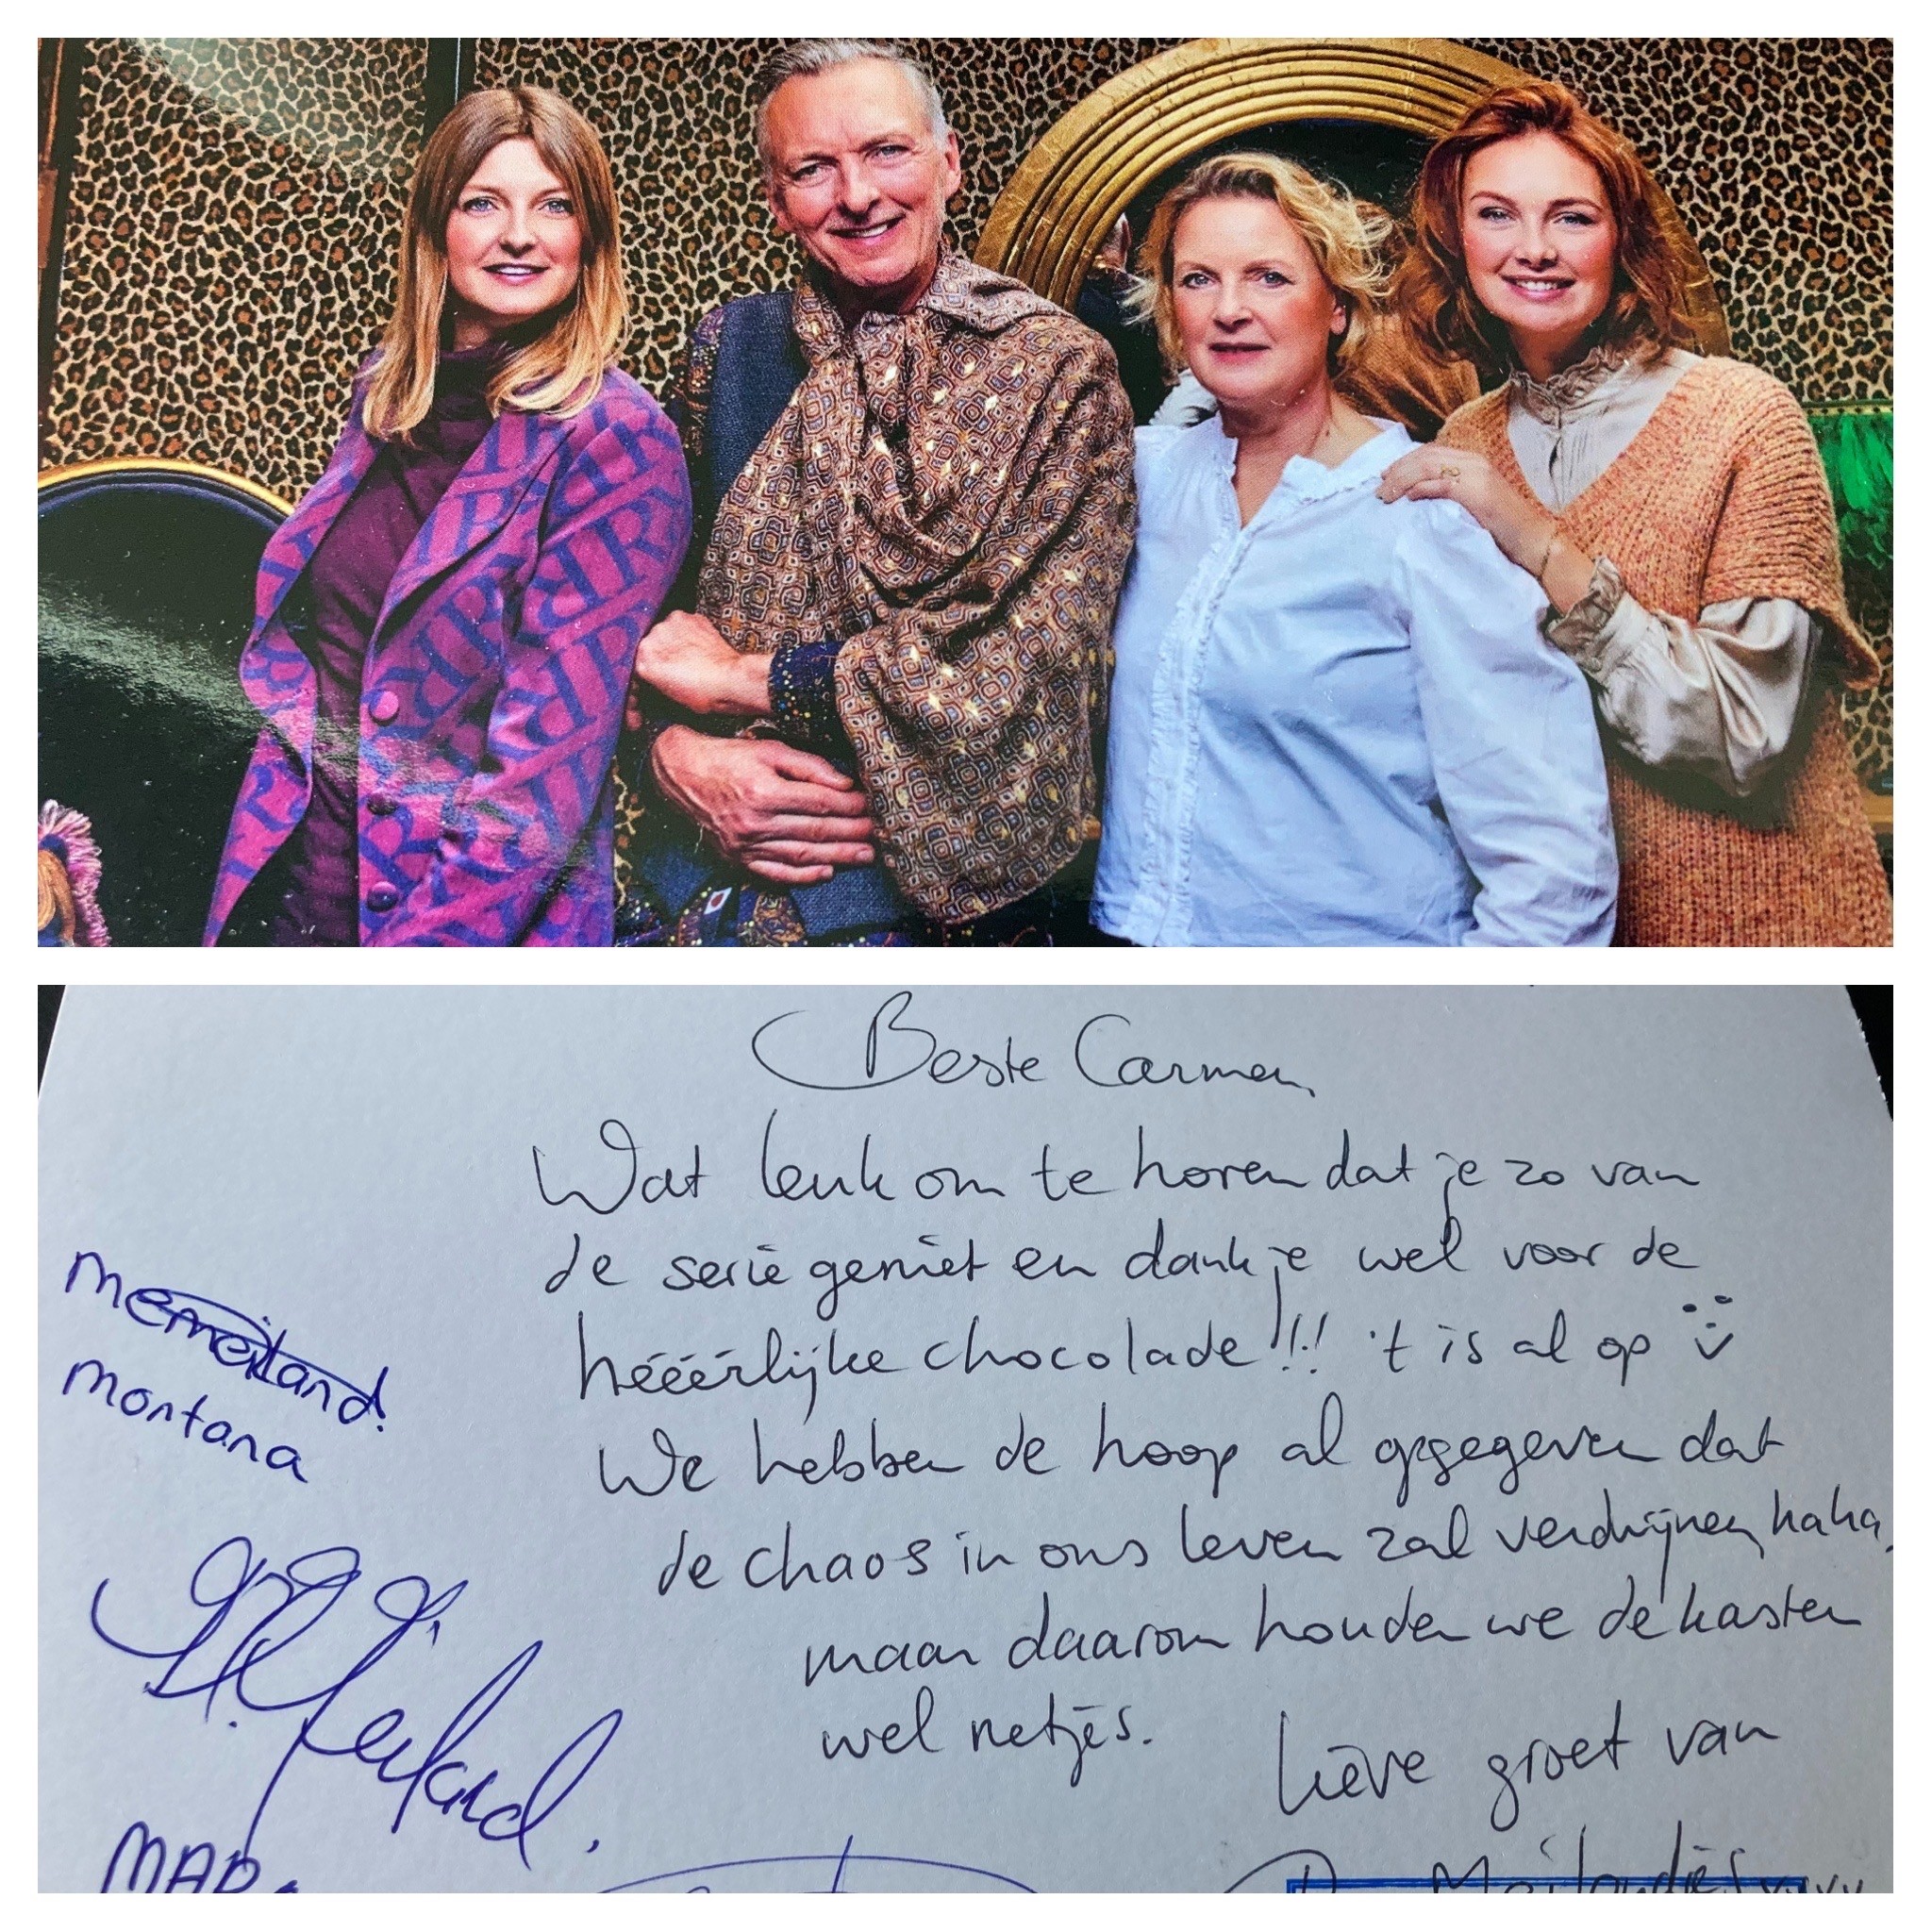 Beste Carmen,
Wat leuk om te horen dat je zo van
de serie geniet en dank je wel voor de
hééérlijke chocolade!!! 't is al op
We hebben de hoop al opgegeven dat
de chaos in ons leven zal verdwijnen, haha,
maar daarom houden we de kasten
wel netjes.
Lieve groet van
De Meilandjes xxxx
Memeiland!
montana
Meiland.